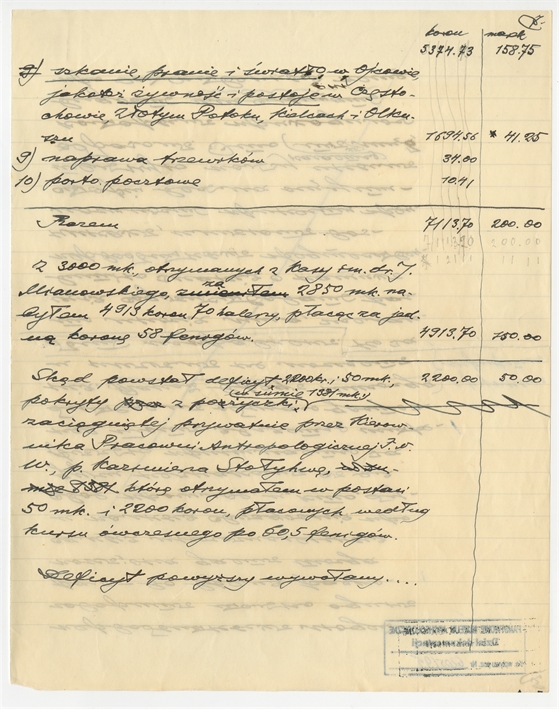 koron mark
5374.73 158.75
8) szkanie, pranie i światło, w Ojcowie
jakoteż żywność i postoje w Często-
chowie Złotym Potoku, Kielcach i Olku-
szu 1694.56 * 41.25
9) naprawa trzewików 34.00
10) porto pocztowe 10.41
Razem 7113.70 200.00
Z 3000 mk. otrzymanych z Kasy im. dr. J.
Mianowskiego, zmieniłem 2850 mk. na-
byłem 4913 koron 70 halerzy, płacąc za jed-
ną koronę 58 fenigów. 4913.70 150.00
Skąd powstał deficyt 2200 kr. i 50 mk., 2200.00 50.00
(w sumie 1381 mk.)
pokryty z pożyczki,
zaciągniętej prywatnie przez Kierow-
nika Pracowni Antropologicznej T. N.
W., p. Kazimierza Stołyhwę,
którą otrzymałem w postaci
50 mk. i 2200 koron, płaconych według
kursu ówczesnego po 60,5 fenigów.
Deficyt powyższy wywołany....